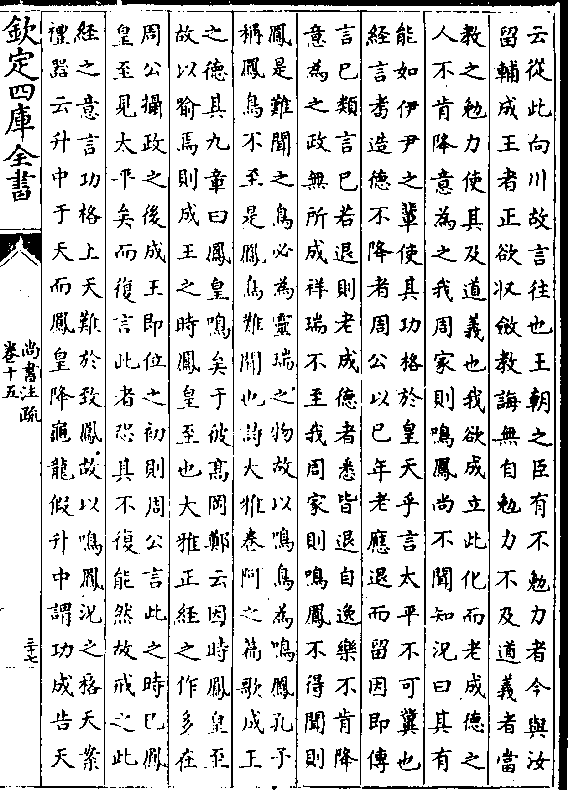 云從此向川故言往也王朝之臣有不勉力者今與汝
留輔成王者正欲収斂教誨無自勉力不及道義者當
教之勉力使其及道義也我欲成立此化而老成德之
人不肯降意為之我周家則鳴鳳尚不聞知況曰其有
能如伊尹之輩使其功格於皇天乎言太平不可冀也
經言耇造德不降者周公以已年老應退而留因即傳
言已類言已若退則老成德者悉皆退自逸樂不肯降
意為之政無所成祥瑞不至我周家則鳴鳳不得聞則
鳳是難聞之鳥必為靈瑞之物故以鳴鳥為鳴鳳孔子
稱鳳鳥不至是鳳鳥難聞也詩大雅卷阿之篇歌成王
之德其九章曰鳳皇鳴矣于彼髙岡鄭云因時鳳皇至
故以喻焉則成王之時鳳皇至也大雅正經之作多在
周公攝政之後成王即位之初則周公言此之時已鳳
皇至見太平矣而復言此者恐其不復能然故戒之此
經之意言功格上天難於致鳳故以鳴鳳況之格天案
禮器云升中于天而鳳皇降龜龍假升中謂功成告天
欽定四庫全書
尚書注疏
卷十五
三十七